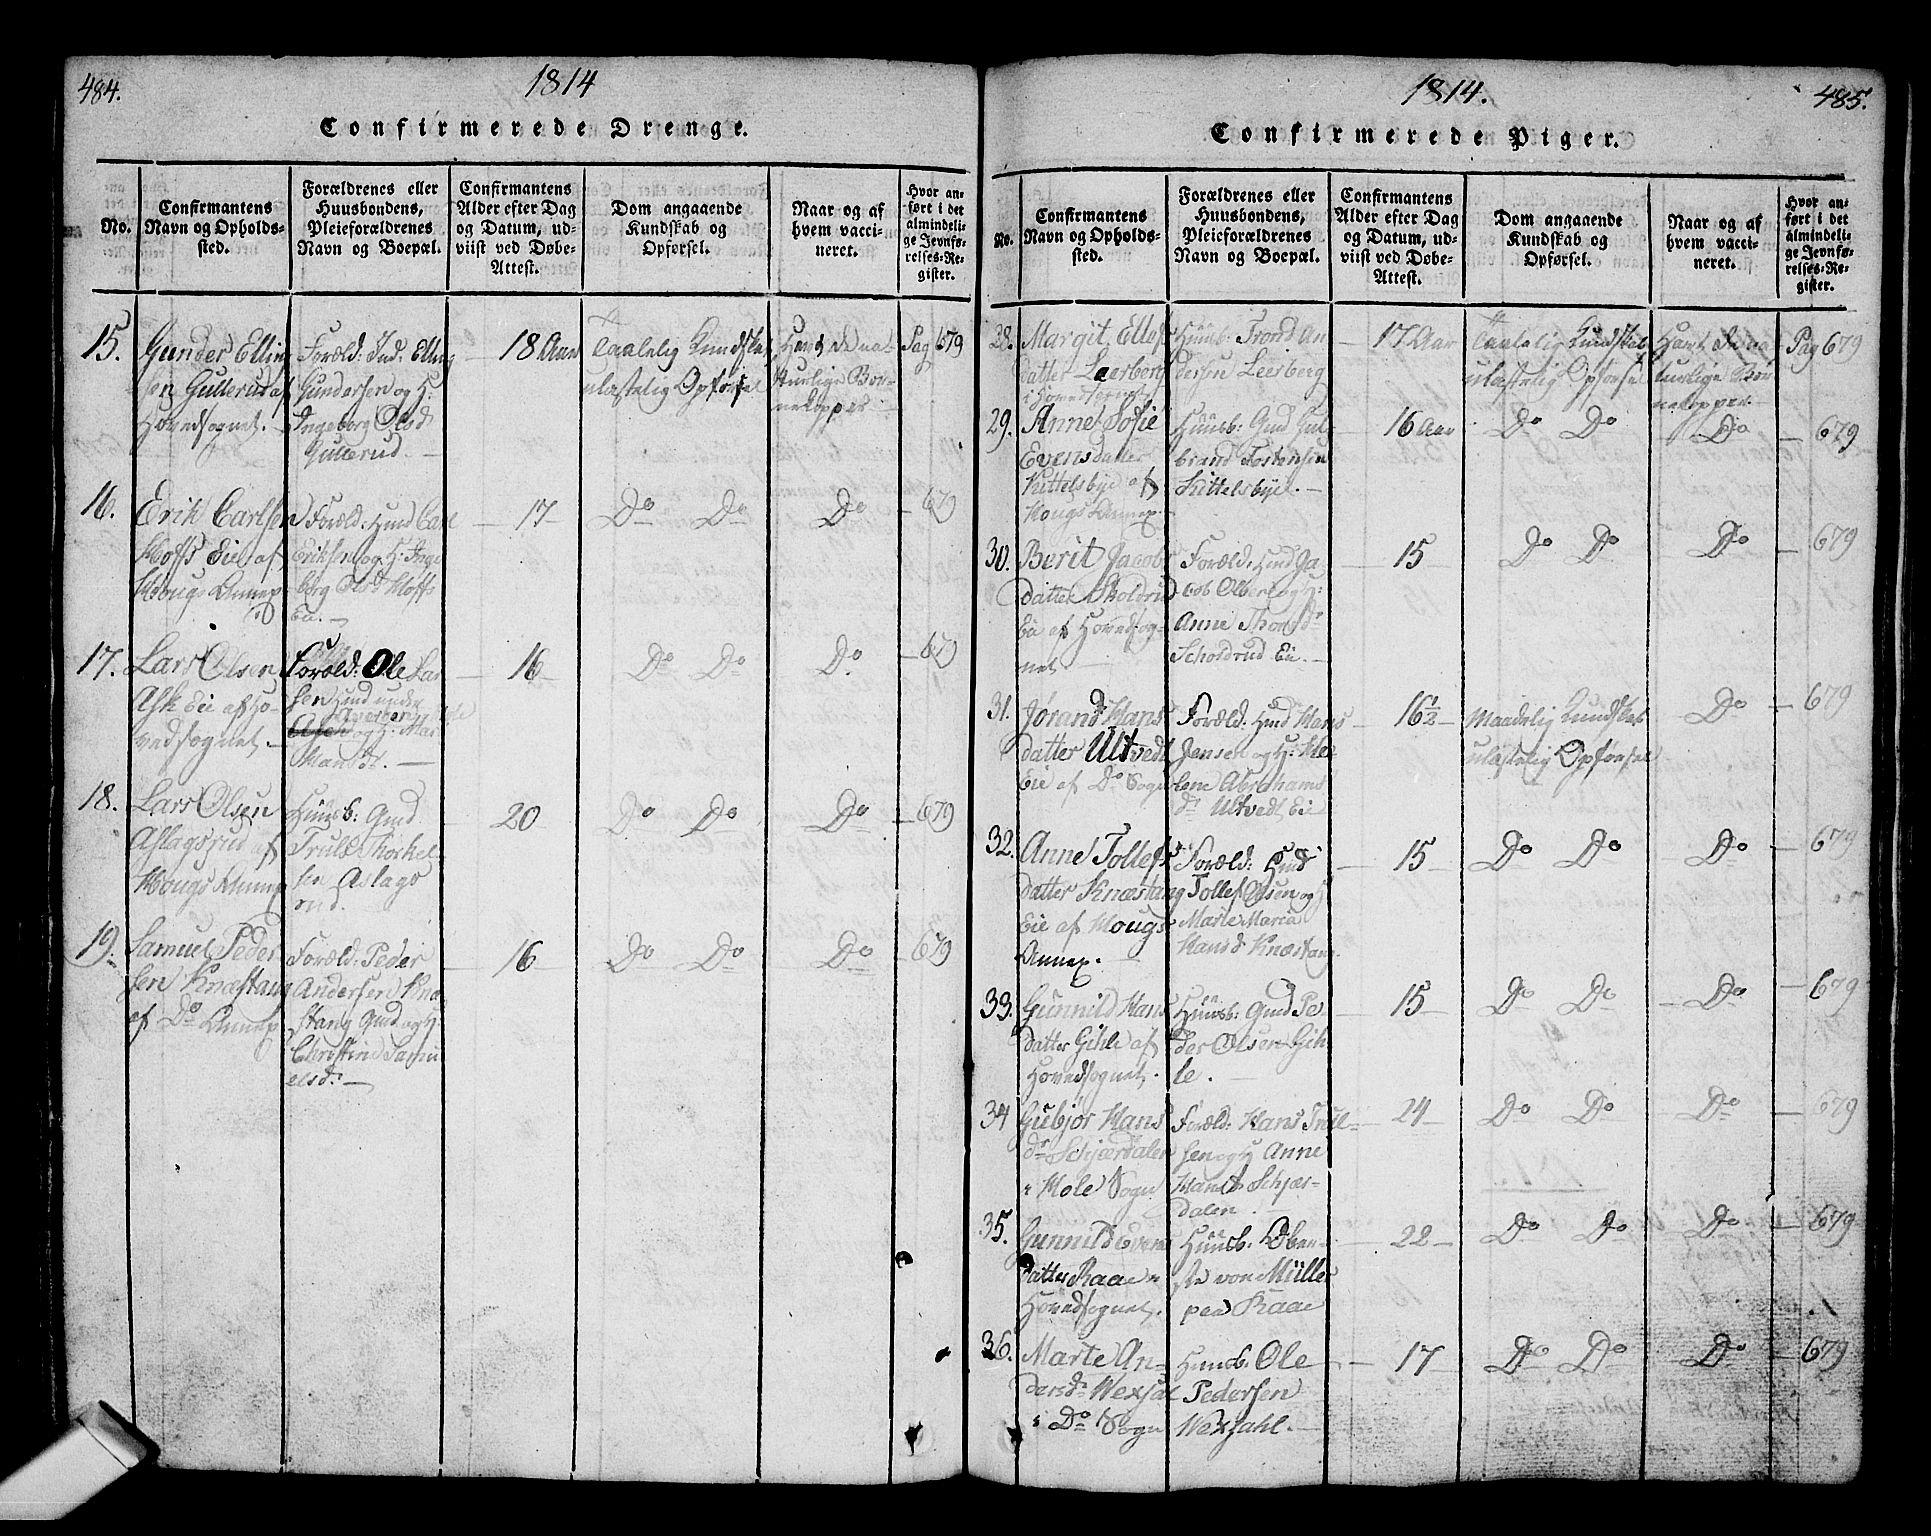 484.
1814
Confirmerede Drenge.
No.
Confirmantens
Navn og Opholds-
sted.
Forældrenes eller
Huusbondens,
Pleieforældrenes
Navn og Boepæl.
Confirmantens
Alder efter Dag
og Datum, ud-
viist ved Døbe-
Attest.
Dom angaaende
Kundskab og
Opførsel.
Naar og af
hvem vacci-
neret.
Hvor an-
ført i det
almindeli-
ge Jevnfø-
relses-Re-
gister.
15.
Gunder Ellin
sen Gullerud af
Hovedsognet.
Foræld: Ellling
Gundersen og H:
Ingeborg Olsd
Gullerud.
18 Aar
Taalelig Kundskab
ulastelig Opførsel
Havt de na
turlige Bør-
nekopper
Pag 679
16.
Erik Carlsen
Hoffs Eie af
Hougs Annex
Foræld: Huusd Carl
Eriksen og H: Inge
borg Olsd Hoffs
Eie.
17
Do Do
Do
679
17.
Lars Olsen
Ask Eie af Ho-
vedsognet.
Foræld: Ole Lar
sen Huusd under
og H: Mar
Hansdr.
16
Do Do
Do
679
18.
Lars Olsen
Aslagsrud af
Hougs Annex
Huusb: Gmd
Truls Torkel-
sen Aslags
rud.
20
Do Do
Do
679
19.
Samuel Peder
sen Knæstang
af Do Annex
Foræld: Peder
Andersen Knæ
stang Gmd og H
Christine Samu
elsdr.
16
Do Do
Do
679
1814.
485.
Confirmerede Piger.
No.
Confirmantens
Navn og Opholds-
sted.
Forældrenes eller
Huusbondens,
Pleieforældrenes
Navn og Boepæl.
Confirmantens
Alder efter Dag
og Datum, ud-
viist ved Døbe-
Attest.
Dom angaaende
Kundskab og
Opførsel.
Naar og af
hvem vacci-
neret.
Hvor an-
ført i det
almindeli-
ge Jevnfø-
relses-Re-
gister.
28.
Margit Ellefs
datter Leerberg
i Hovedsognet
Huusb: Trond An
dersen Leerberg
17 Aar
Taalelig Kundskab
ulastelig Opførsel
Havt de na
turlige Bør
nekopper
Pag 679
29.
Anne Sofie
Evensdatter
Kittelsbye af
Hougs Annex.
Huusb: Gmd Gul
brand Tostensen
Kittelsbye.
16 Aar
Do Do
Do
679
30.
Berit Jacobs
datter Skoldrud
Eie af Hovedsog-
net
Foræld: Huusd Ja
cob Olsen og H:
Anne Thorsdr
Scholdrud Eie.
15
Do Do
Do
679
31.
Jorand Hans
datter Ultvedt
Eie af Do Sogn
Foræld: Huusd Hans
Jensen og H: He
lene Abrahams
dr Ultvedt Eie
16 1/2
Maadelig Kundskab
ulastelig Opførsel
Do
679
32.
Anne Tollefs
datter Knæstang
Eie af Hougs
Annex.
Foræld: Huusd
Tollef Olsen og H
Marie Maria
Hansd Knæstang
15
Do Do
Do
679
33.
Gunnild Hans
datter Gihle af
Hovedsognet.
Huusb: Gmd Pe
der Olsen Gih
le.
15
Do Do
Do
679
34
Gubjør Hans
dr Schjærdalen
i Hole Sogn
Foræld: Hans Trul-
sen og H Anne
Hansd Schjær-
dalen.
24
Do Do
Do
679
35.
Gunnild Evens
datter Raae i
Hovedsognet.
Huusb. Ober-
ste von Müller
paa Raae
22
Do Do
Do
679
36.
Marte An-
dersdr Wexsal
i Do Sogn
Huusb. Ole
Pedersen
Wexsahl.
17
Do Do
Do
679